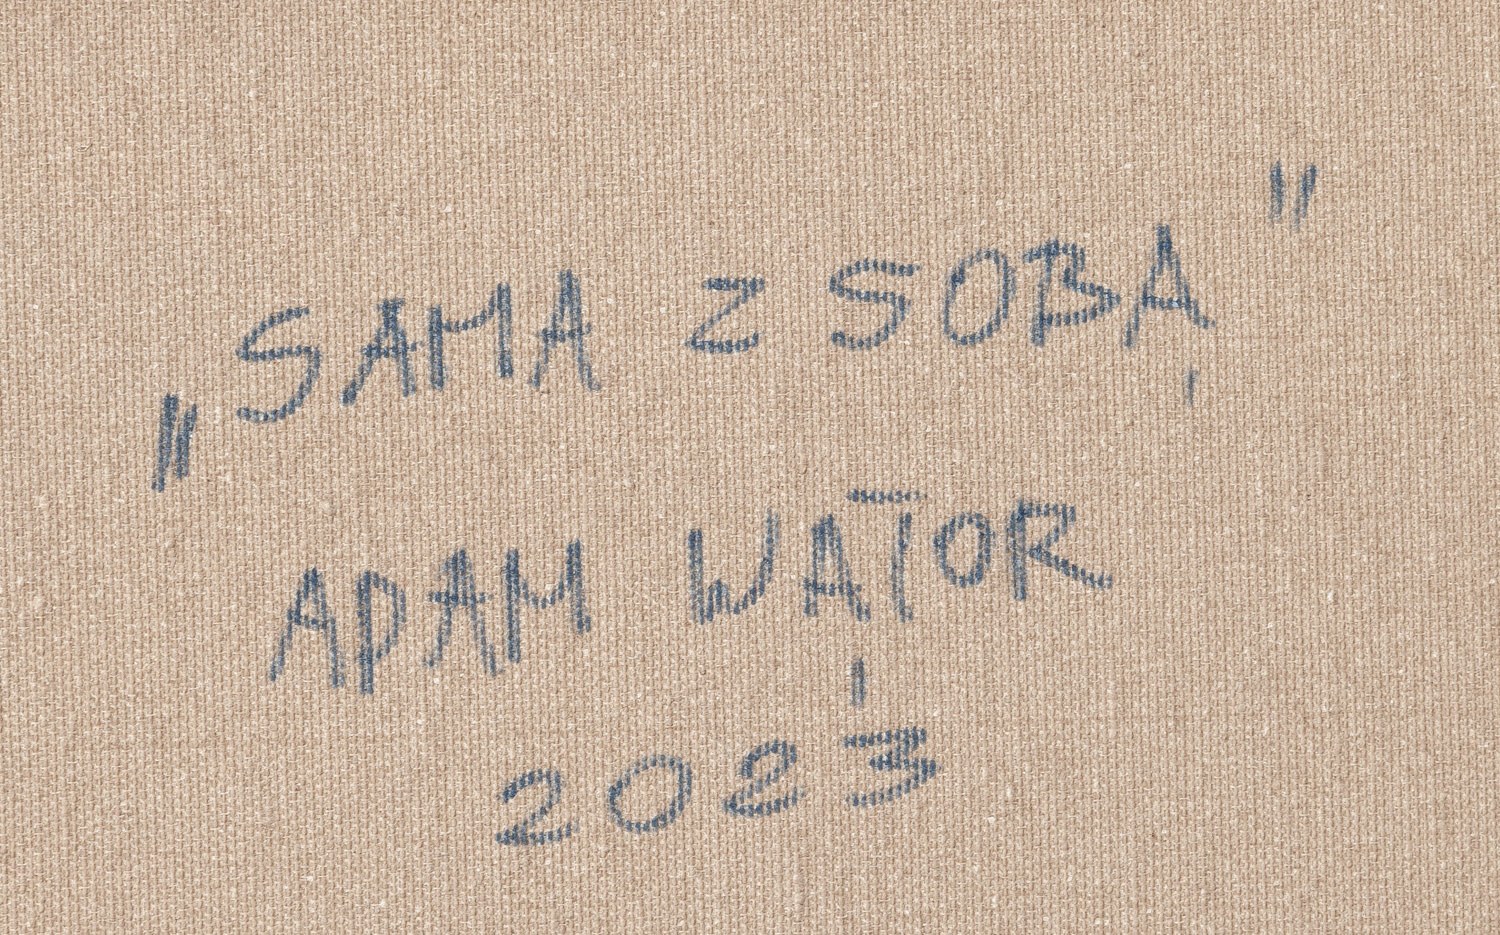 „SAMA Z SOBĄ"
ADAM WĄTOR
2023